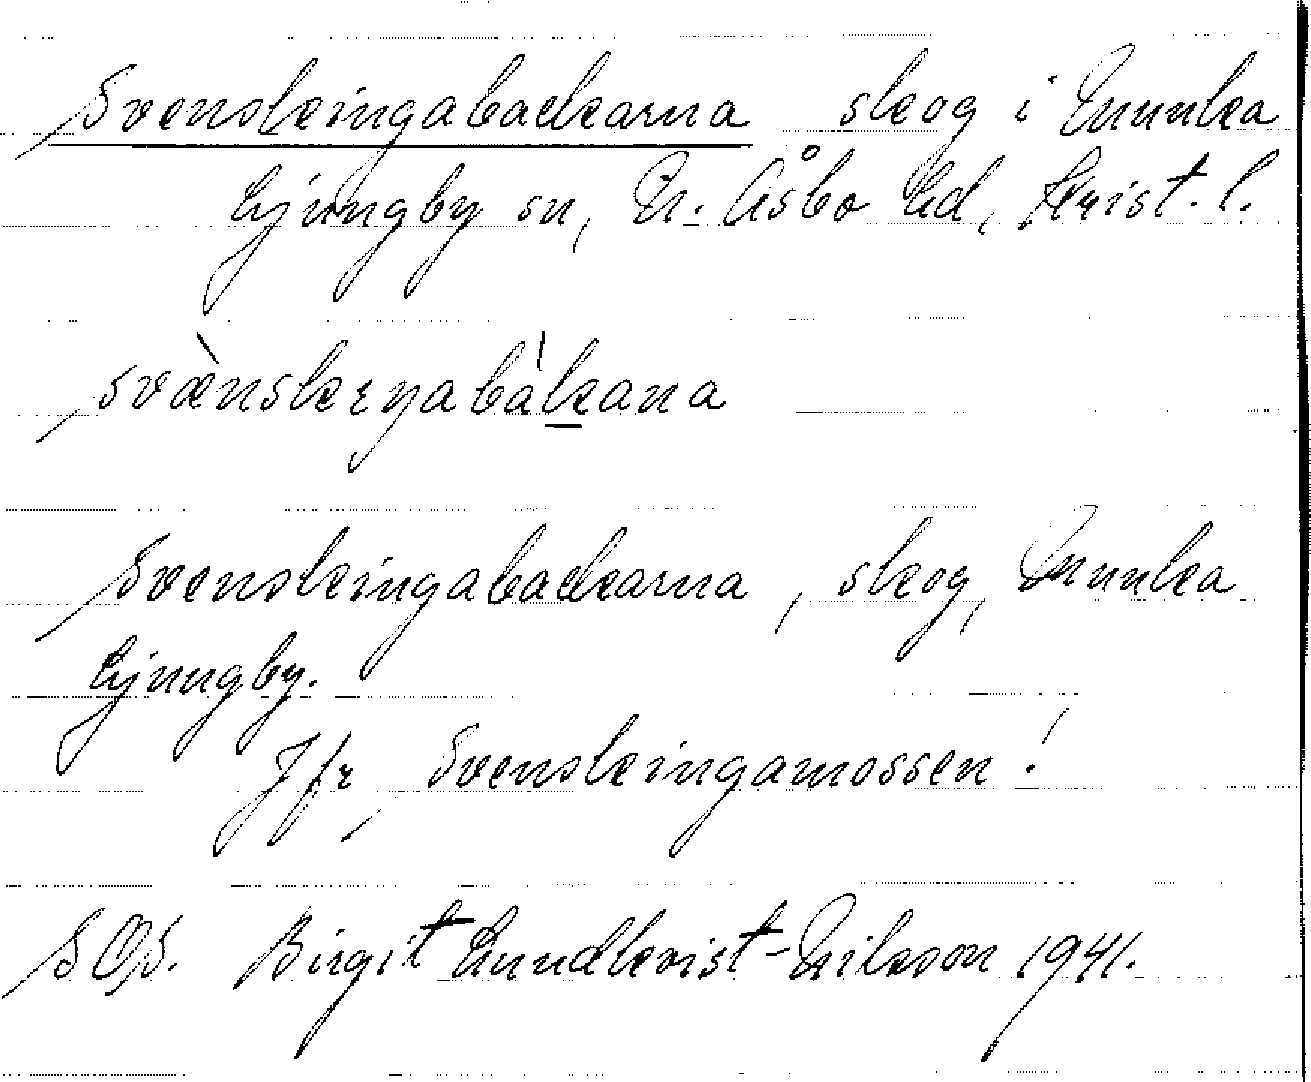 Svenskingabackarna skog i Munka
Ljungby sn, N. Åsbo hd, Krist. l.
svènskɪŋabàkana
Svenskingabackarna, skog, Munka
Ljungby.
Jfr Svenskingamossen!
SOS. Birgit Lundkvist-Nilsson 1941.